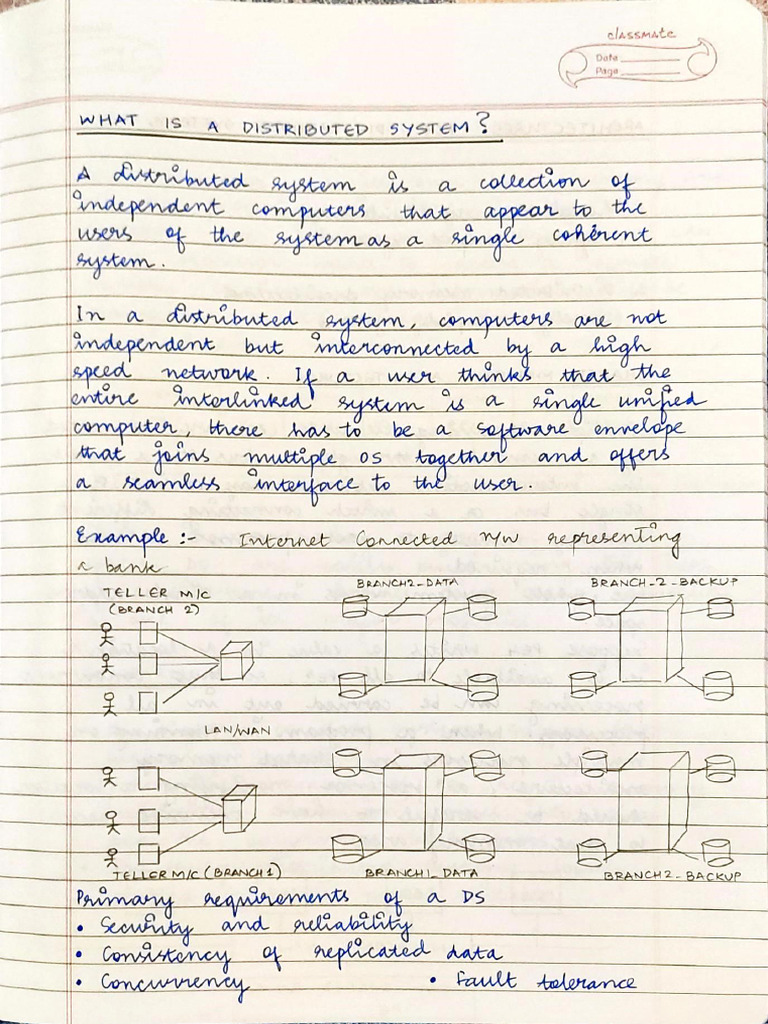 classmate
Date
Page
WHAT IS A DISTRIBUTED SYSTEM?
A distributed system is a collection of
independent computers that appear to the
users of the system as a single coherent
system.
In a distributed system, computers are not
independent but interconnected by a high
speed network. If a user thinks that the
entire interlinked system is a single unified
computer, there has to be a software envelope
that joins multiple OS together and offers
a seamless interface to the user.
Example :- Internet Connected n/w representing
a bank
TELLER M/C
(BRANCH 2)
BRANCH2_DATA
BRANCH_2_BACKUP
LAN/WAN
TELLER M/C (BRANCH 1)
BRANCH1_DATA
BRANCH2_BACKUP
Primary requirements of a DS
• Security and reliability
• Consistency of replicated data
• Concurrency • Fault tolerance